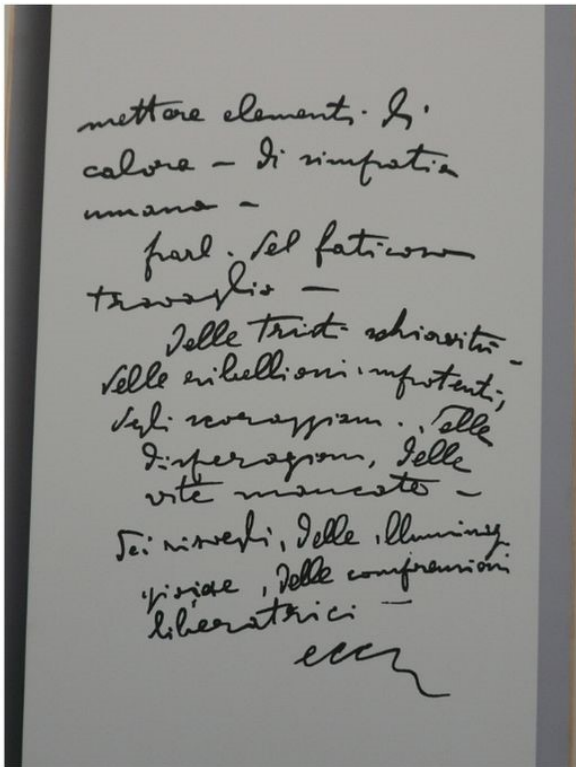 mettere elementi di
calore – di simpatia
umana –
parl. del faticoso
travaglio –
delle tristi schiavitù –
delle ribellioni impotenti,
degli scoraggiam. , delle
disperazioni, delle
vite mancate –
dei risvegli, delle illumina
, delle comprensioni
liberatrici –
ecc